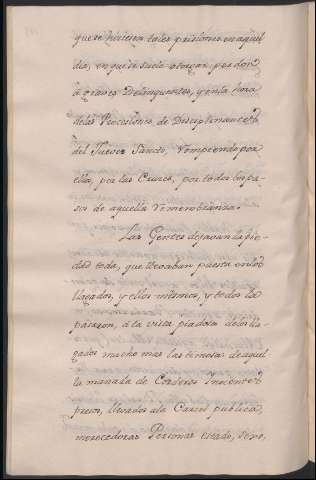 que se hiciesen tales prisiones en aquel
dia, en que se suele otorgar perdon
à graves Delinquentes, y en la hora
de las Processiones de Disciplinantes
del Jueves Sancto, rompiendo por
ellas, por las Cruces, por todos los pa-
sos de aquella rememorazion.
Las Gentes dejavan la pie-
dad toda, que llevaban puesta en los
llagados, y ellos mismos, y todos la
pasaron, à la vista piadosa de los lla-
gados mucho mas lastimosa de aque-
lla manada de Corderos Innocentes
presos, llevados a la Carcel publica,
Personas estado, sexo,